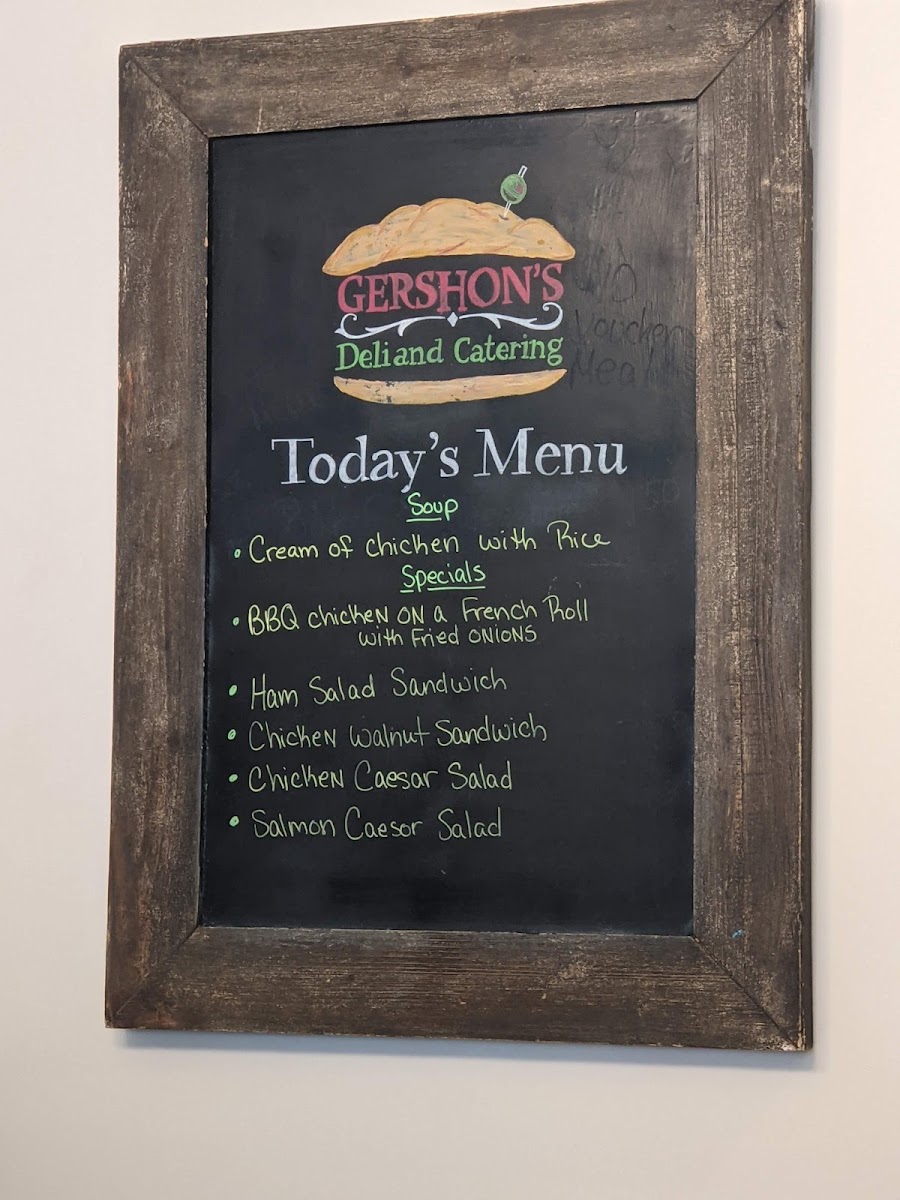 GERSHON'S
Deli and Catering
Voucher
Meal
Today's Menu
Soup
• Cream of chicken with Rice
Specials
• BBQ chicken on a French Roll
with Fried onions
• Ham Salad Sandwich
• Chicken Walnut Sandwich
• Chicken Caesar Salad
• Salmon Caesor Salad